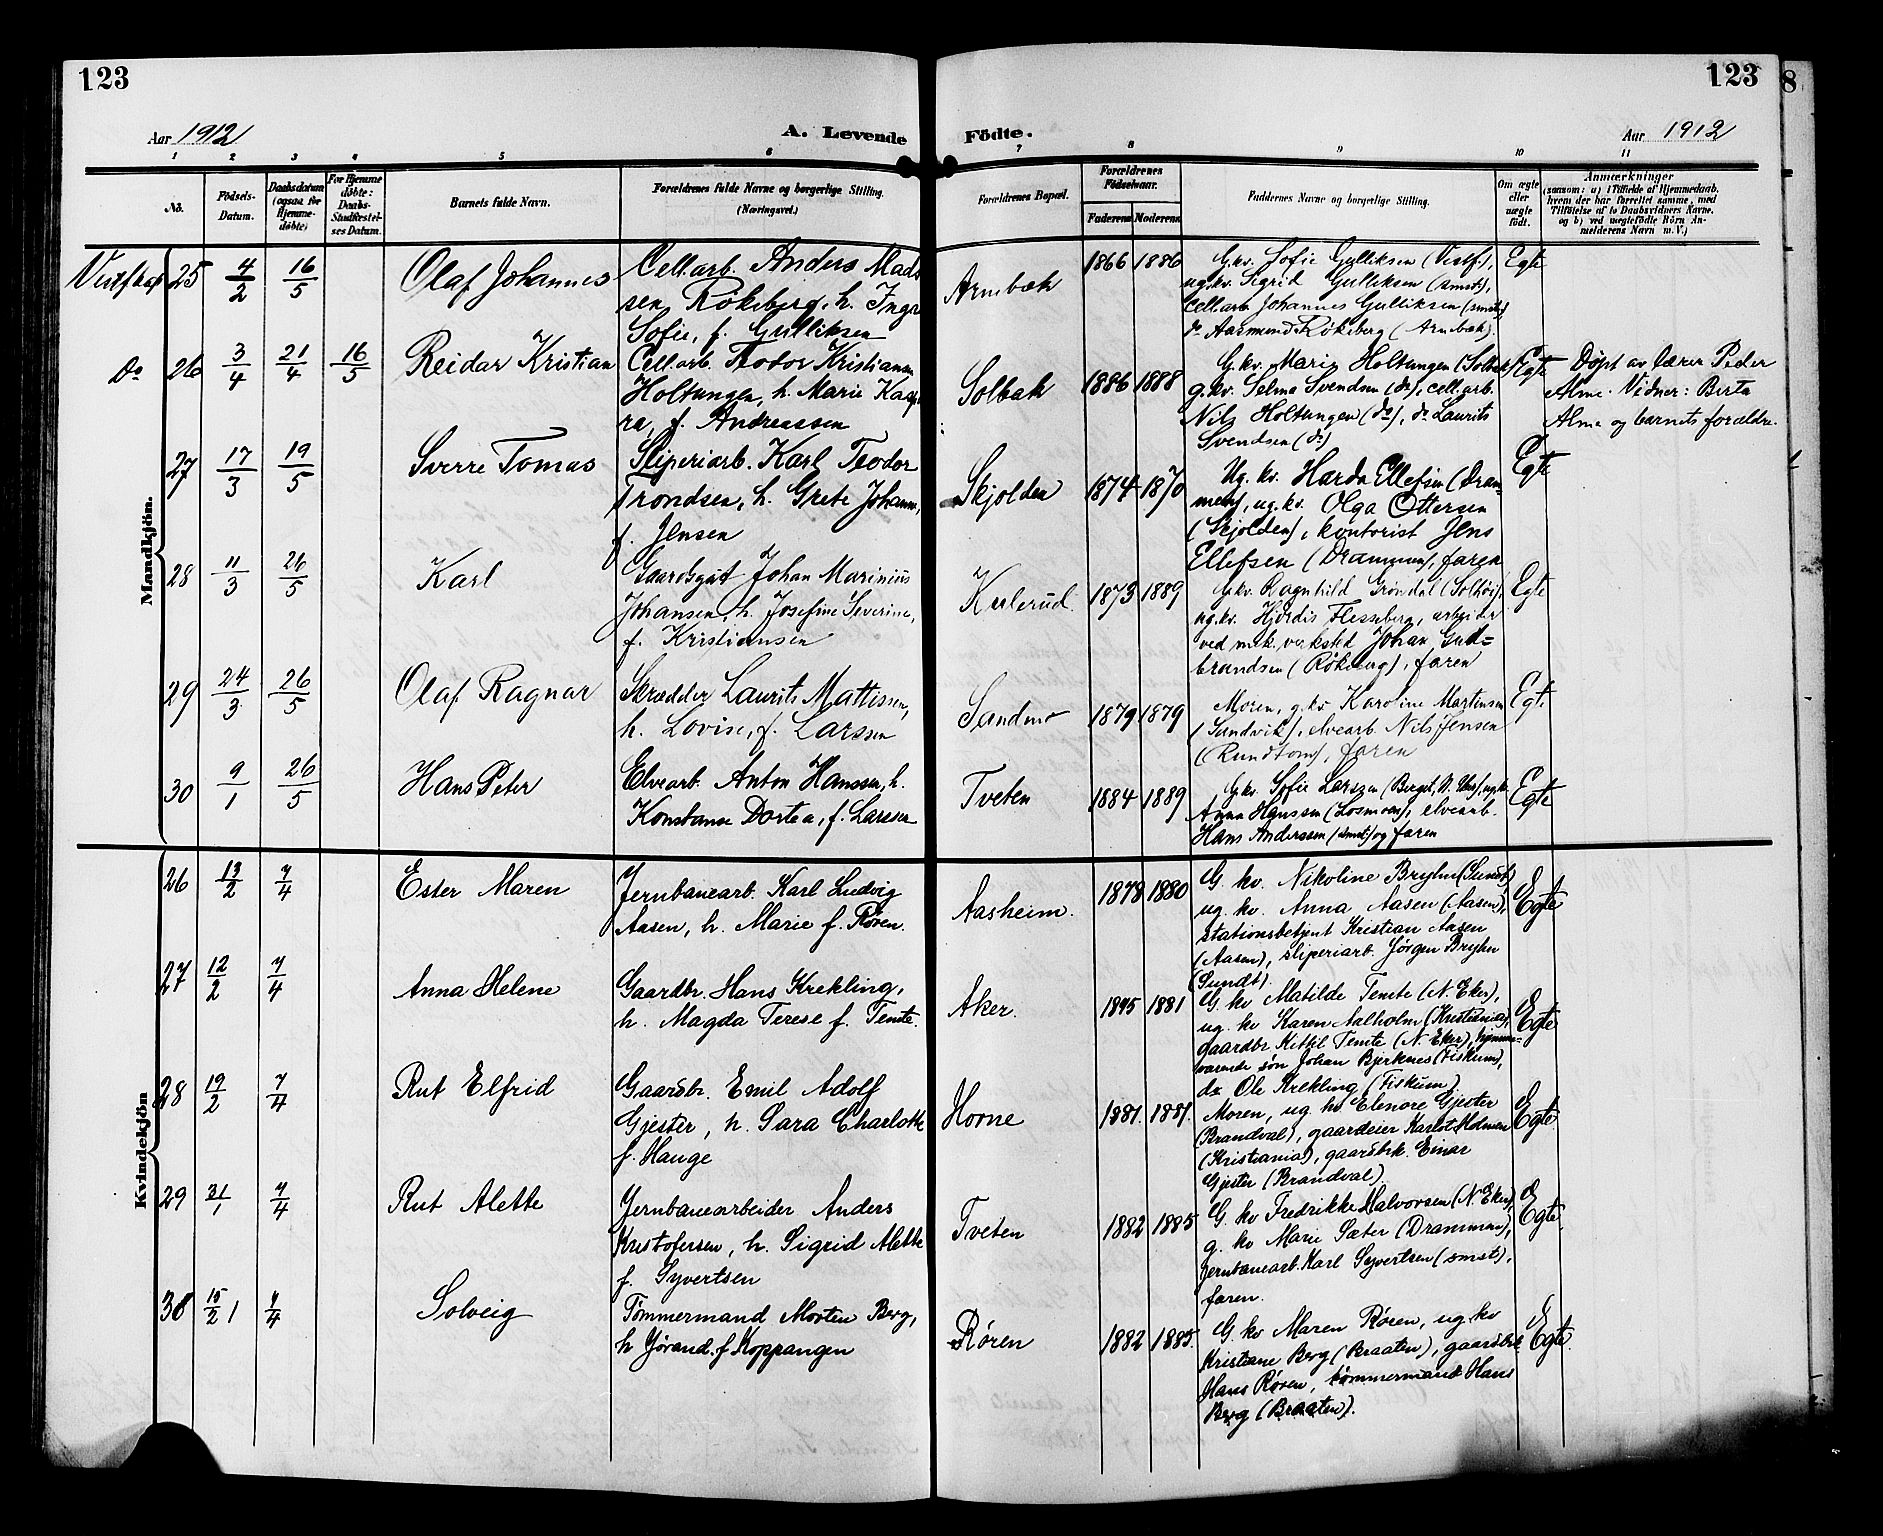 123
123
8
Aar 1912
A. Levende
Födte.
Aar 1912
1 2 3 4 5 6 7 8 9 10 11
No.
Födsels-
Datum.
Daabsdatum
(ogsaa for
Hjemme-
döbte)
For Hjemme
döbte:
Daabs-
Stadfæstel-
ses Datum.
Barnets fulde Navn.
Forældrenes fulde Navne og borgerlige Stilling.
(Næringsvei.)
Forældrenes Bopæl.
Forældrenes
Födselsaar.
Faderens
Moderens
Faddernes Navne og borgerlige Stilling.
Om ægte
eller
uægte
födt.
Anmærkninger
(saasom: a) i Tilfælde af Hjemmedaab,
hvem der har forrettet samme, med
Tilföielse af to Daabsvidners Navne,
og b) ved uægtefödte Börn An-
melderens Navn m. V.)
Mandkjön.
Vestfos 25 4/2 16/5 Olaf Johannes
Cell.arb. Anders Mads-
sen Røkeberg, h. Inga
Sofie, f. Gulliksen
Arnebæk 1866 1886
G.kv. Sofie Gulliksen (Vestf.),
ug.kv. Sigrid Gulliksen (smst.),
cell.arb. Johannes Gulliksen (smst.)
do Aasmund Røkeberg (Arnebæk).
Egte
Do 26 3/4 21/4 16/5 Reidar Kristian
Cell.arb. Teodor Kristiansen
Holtungen, h. Marie Kasp-
ra, f. Andreassen
Solbak 1886 1888
G.kv. Marie Holtungen (Solbak)
g.kv. Selma Svendsen (do), cell.arb.
Nils Holtungen (do), do Laurits
Svendsen (do)
Egte
Døpt av lærer Peder
Alme. Vidner: Berta
Alme og barnets forældre.
27 17/3 19/5 Sverre Tomas
Sliperiarb. Karl Teodor
Trondsen, h. Grete Johanne,
f. Jensen
Skjolden 1874 1870
Ug. kv. Harda Ellefsen (Dram-
men), ug.kv. Olga Ottersen
(Skjolden), kontorist Jens
Ellefsen (Drammen), faren
Egte
28 11/3 26/5 Karl
Gaardsgut Johan Marinius
Johansen, h. Josefine Severine,
f. Kristiansen
Kulerud. 1873 1889
G.kv. Ragnhild Grøndal (Solhøi),
ug.kv. Hjørdis Flesseberg, arbeider
ved mek. verksted Johan Gud-
brandsen (Røkeberg), faren
Egte
29 24/3 26/5 Olaf Ragnar
Skrædder Laurits Mattissen,
h. Lovise, f. Larssen
Sandmo 1879 1879
Moren, g.kv. Karoline Martinsen
(Sundvik), elvearb. Nils Jensen
(Rundtom), faren
Egte
30 9/1 26/5 Hans Peter
Elvearb. Anton Hanssen, h.
Konstanse Dortea, f. Larssen
Tveten 1884 1889
G.kv. Sofie Larssen (Berget, N. Eker), ug.kv.
Anna Hanssen (Losmoen), elvearb.
Hans Anderssen (smst.) og faren
Egte
Kvindekjön
26 13/2 7/4 Ester Maren
Jernbanearb. Karl Ludvig
Aasen, h. Marie f. Røren.
Aasheim. 1878 1880
G. kv. Nikoline Bryhn (Sundt)
ug. kv. Anna Aasen (Aasen),
stationsbetjent Kristian Aasen
(Aasen), sliperiarb. Jørgen Bryhn
(Sundt).
Egte
27 12/2 7/4 Anna Helene
Gaardbr. Hans Krekling,
h. Magda Terese f. Temte.
Aker. 1845 1881
G. kv Matilde Temte (N. Eker),
ug. kv Karen Aalholm (Kristiania),
gaardbr Kittil Temte (N. Eker), hjemme-
værende søn Johan Bjerknes (Fiskum),
do Ole Krekling (Fiskum)
Egte
28 19/2 7/4 Rut Elfrid
Gaardbr. Emil Adolf
Gjester, h. Sara Charlotte
f. Hauge
Horne 1881. 1881.
Moren, ug. kv. Elenore Gjester
(Brandval), gaardeier Karlot Holmen
(Kristiania), gaardbrk. Einar
Gjester (Brandval).
Egte
29 31/1 7/4 Rut Alette
Jernbanearbeider Anders
Kristofersen, h. Sigrid Alette
f. Syvertsen
Tveten 1882 1885
G. kv Fredrikke Halvorsen (N. Eker),
g. kv Marie Sæter (Drammen),
jernbanearb. Karl Syvertsen (smst),
faren.
Egte
30 15/2 1 7/4 Solveig
Tømmermand Morten Berg,
h Jørand. f Koppangen
Røren 1882 1885.
G. kv Maren Røren, ug. kv
Kristiane Berg (Braaten), gaardbrk
Hans Røren, tømmermand Hans
Berg (Braaten).
Egte.